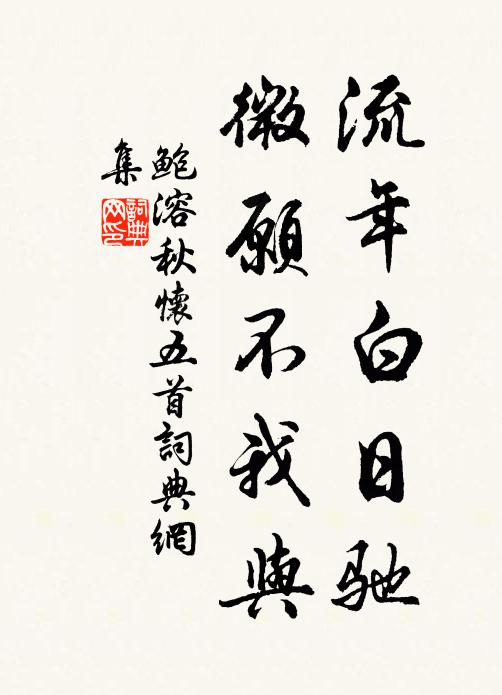 流年白日驰
微願不我與
鮑溶秋懷五首詞典網
集
詞典網印